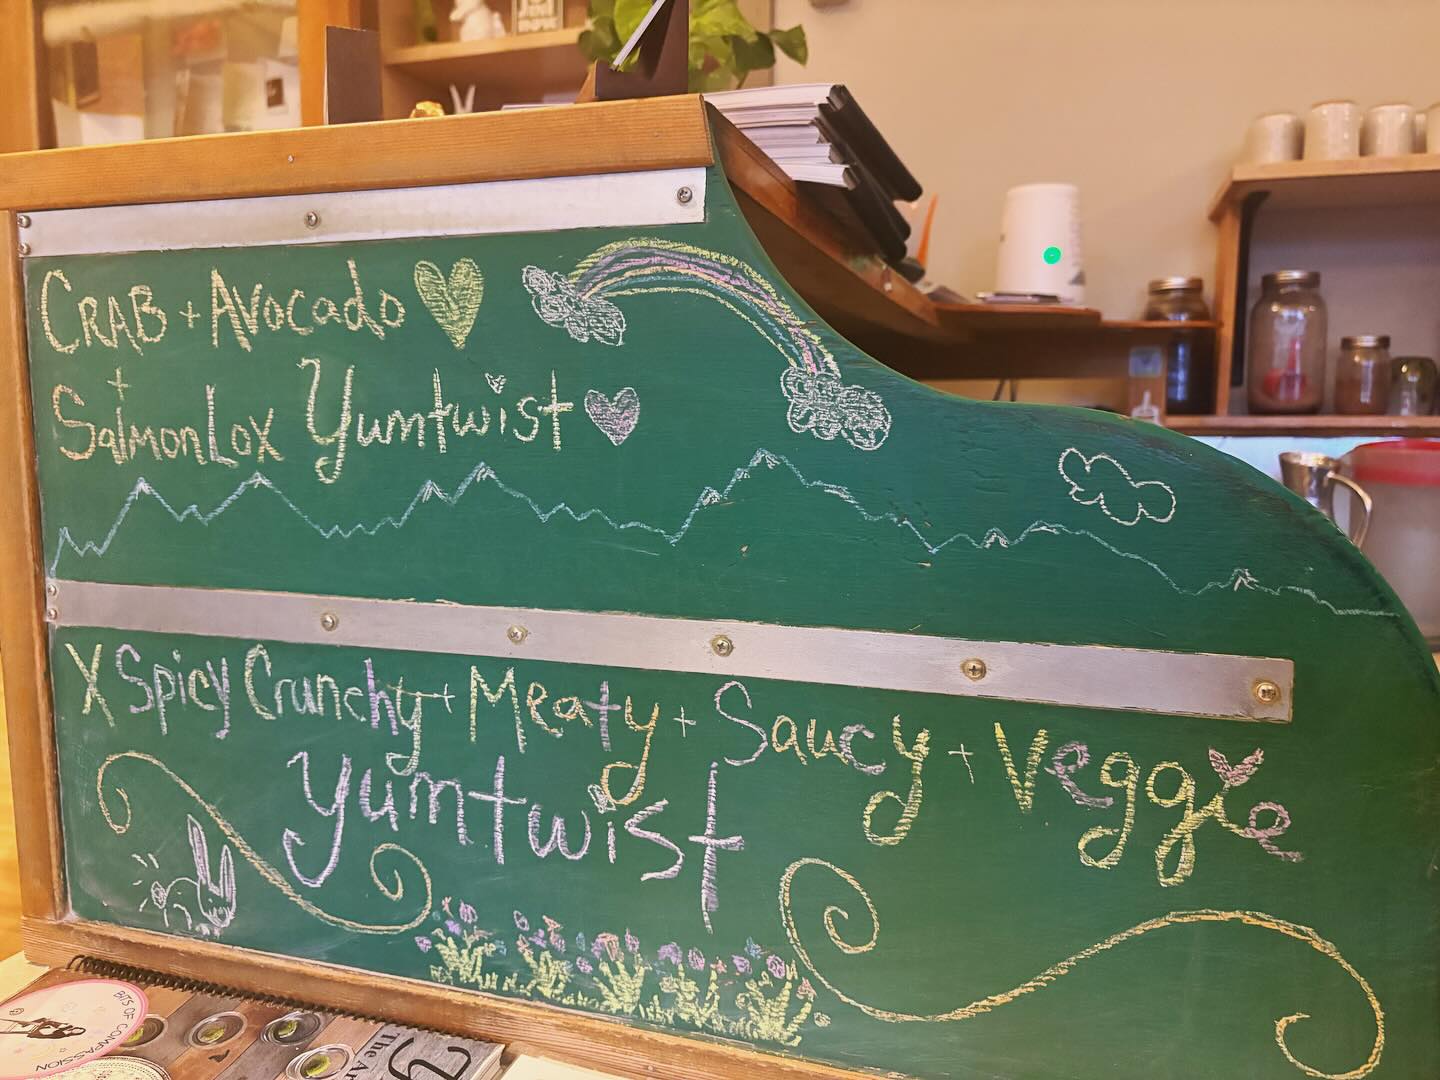 CRAB + Avocado
+
SalmonLox Yumtwist
X Spicy Crunchy + Meaty + Saucy + Veggie
Yumtwist
BITS OF COMPASSION
The